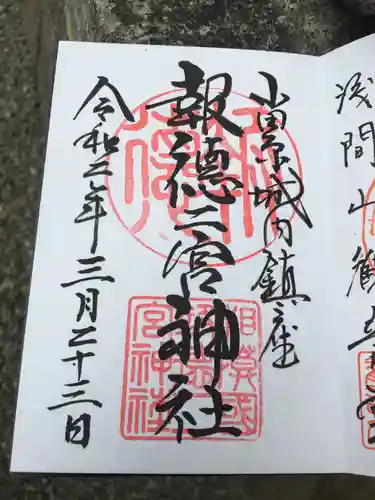 浅間山観音堂
小田原城内鎮座
報徳二宮神社
令和二年三月二十三日
相模國
報徳二
宮神社